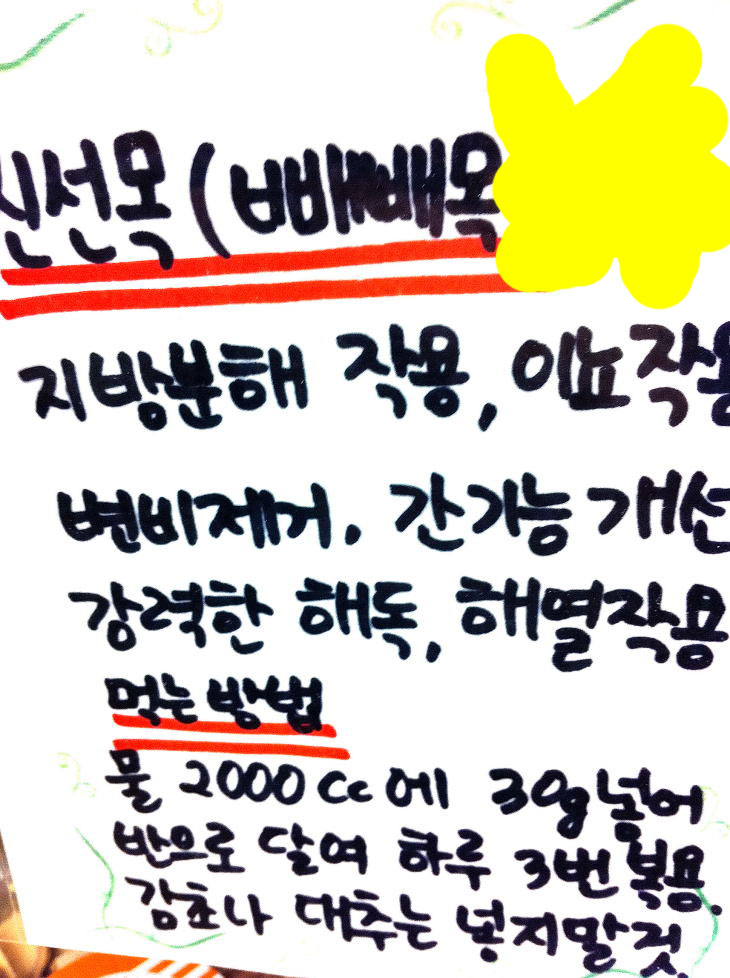 신선목(빼빼목
지방분해 작용, 이뇨작용
변비제거. 간기능개선
강력한 해독, 해열작용
먹는방법
물 2000cc에 30g넣어
반으로 달여 하루 3번복용.
감초나 대추는 넣지말것.